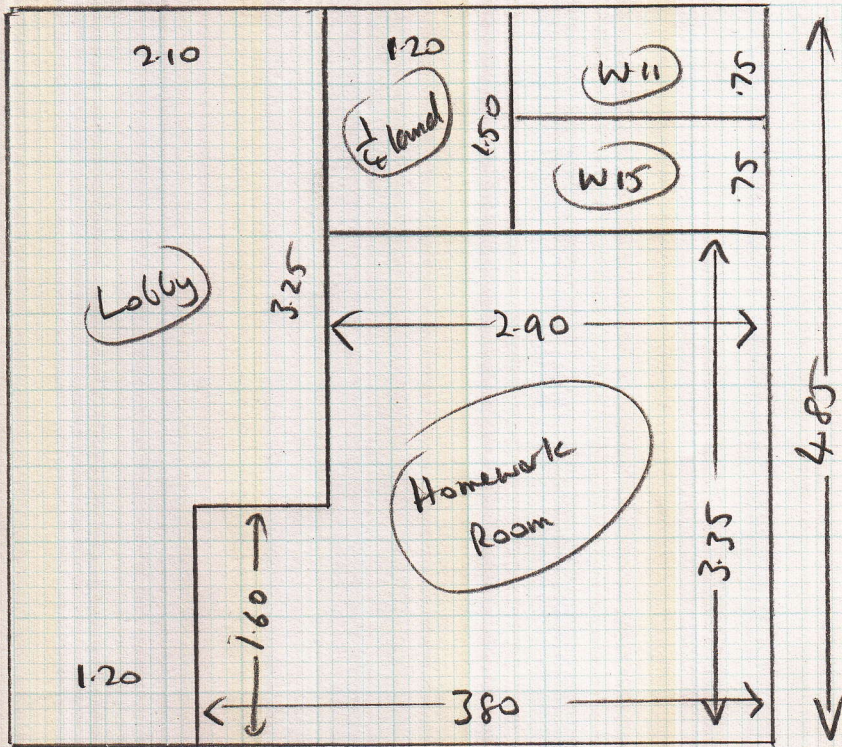 2.10
1.20
1/4 land
1.50
W11
.75
W15
.75
Lobby
3.25
2.90
4.85
Homework
Room
3.35
1.60
1.20
380